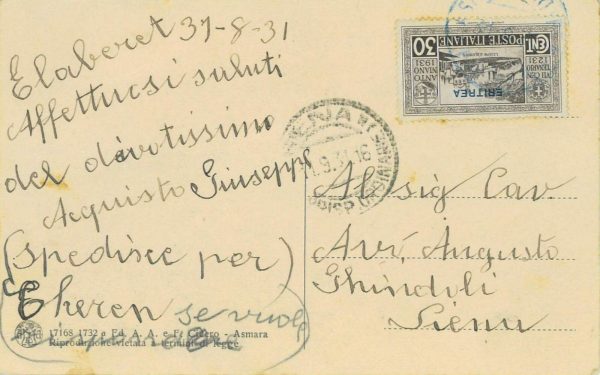 Elaberet 31-8-31
Affettuosi saluti
del divotissimo
Acquisto Giuseppe
(spedisce per)
Cheren se vuole
17168 1732 a Ed. A. A. e F. Cicero - Asmara
Riproduzione vietata a termini di legge
CENT. 30
POSTE ITALIANE
VII CENTENARIO ANTONIANO
1231 1931
ERITREA
SIENA
9.31.16
Al sig Cav.
Avv. Augusto
Ghindoli
Siena